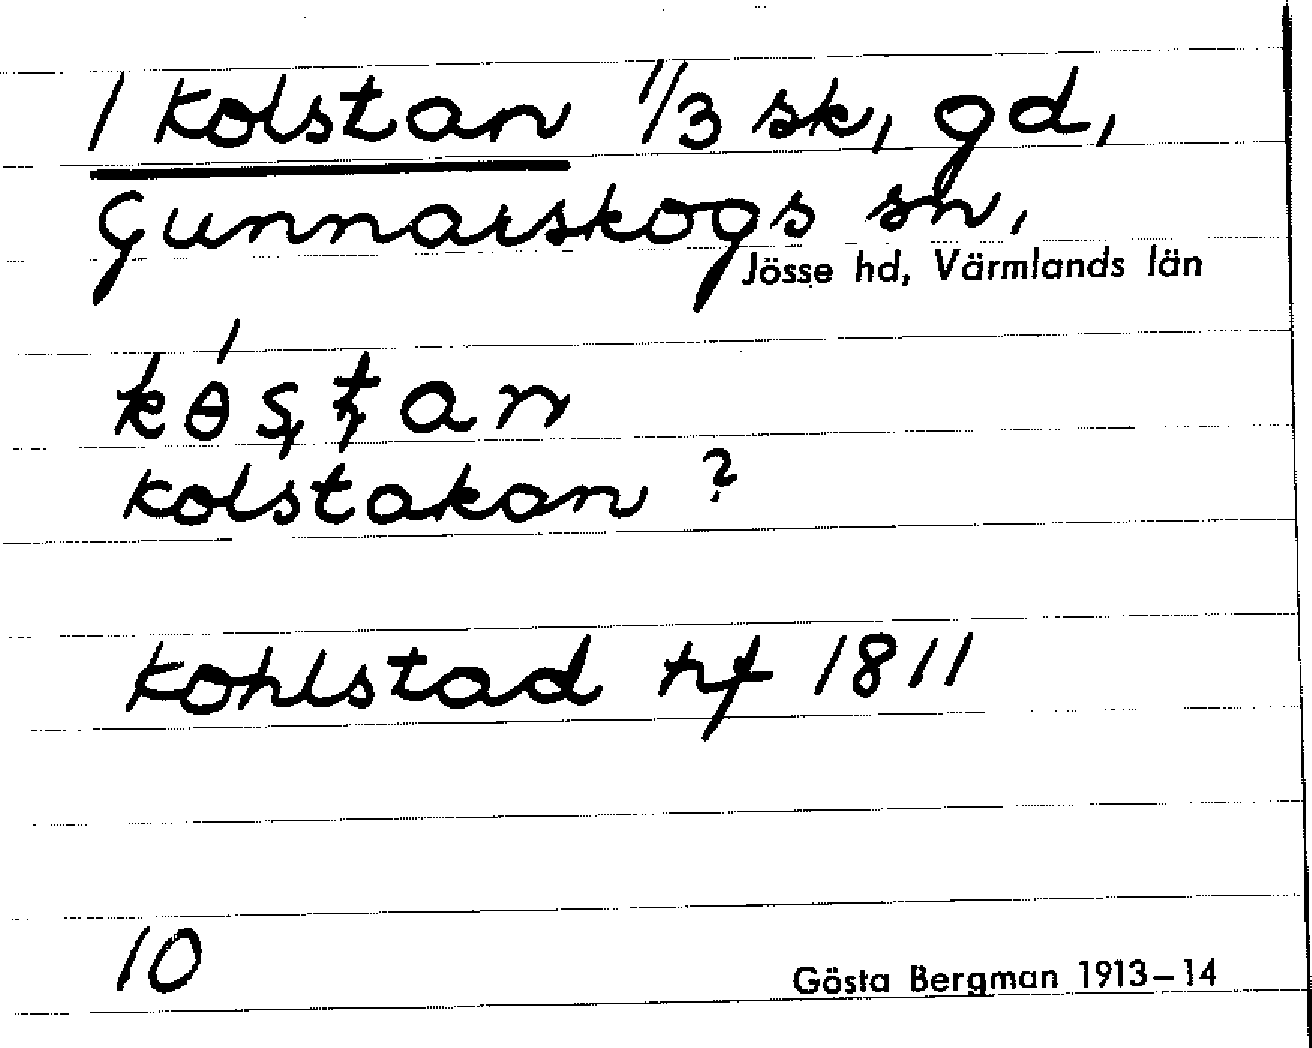 1 Kolstan 1/3 sk, gd,
Gunnarskogs sn,
Jösse hd, Värmlands län
kolstakan ?
Kohlstad hf 1811
10
Gösta Bergman 1913–14